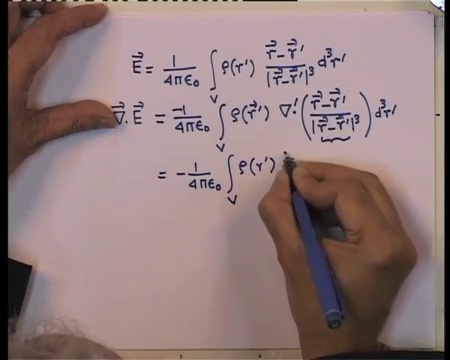 E⃗ = 1/4πε₀ ∫_V ρ(r') (r⃗ - r⃗')/|r⃗ - r⃗'|³ d³r'
∇⃗. E⃗ = -1/4πε₀ ∫_V ρ(r⃗') ∇'. ( (r⃗ - r⃗')/|r⃗ - r⃗'|³ ) d³r'
= - 1/4πε₀ ∫_V ρ(r')